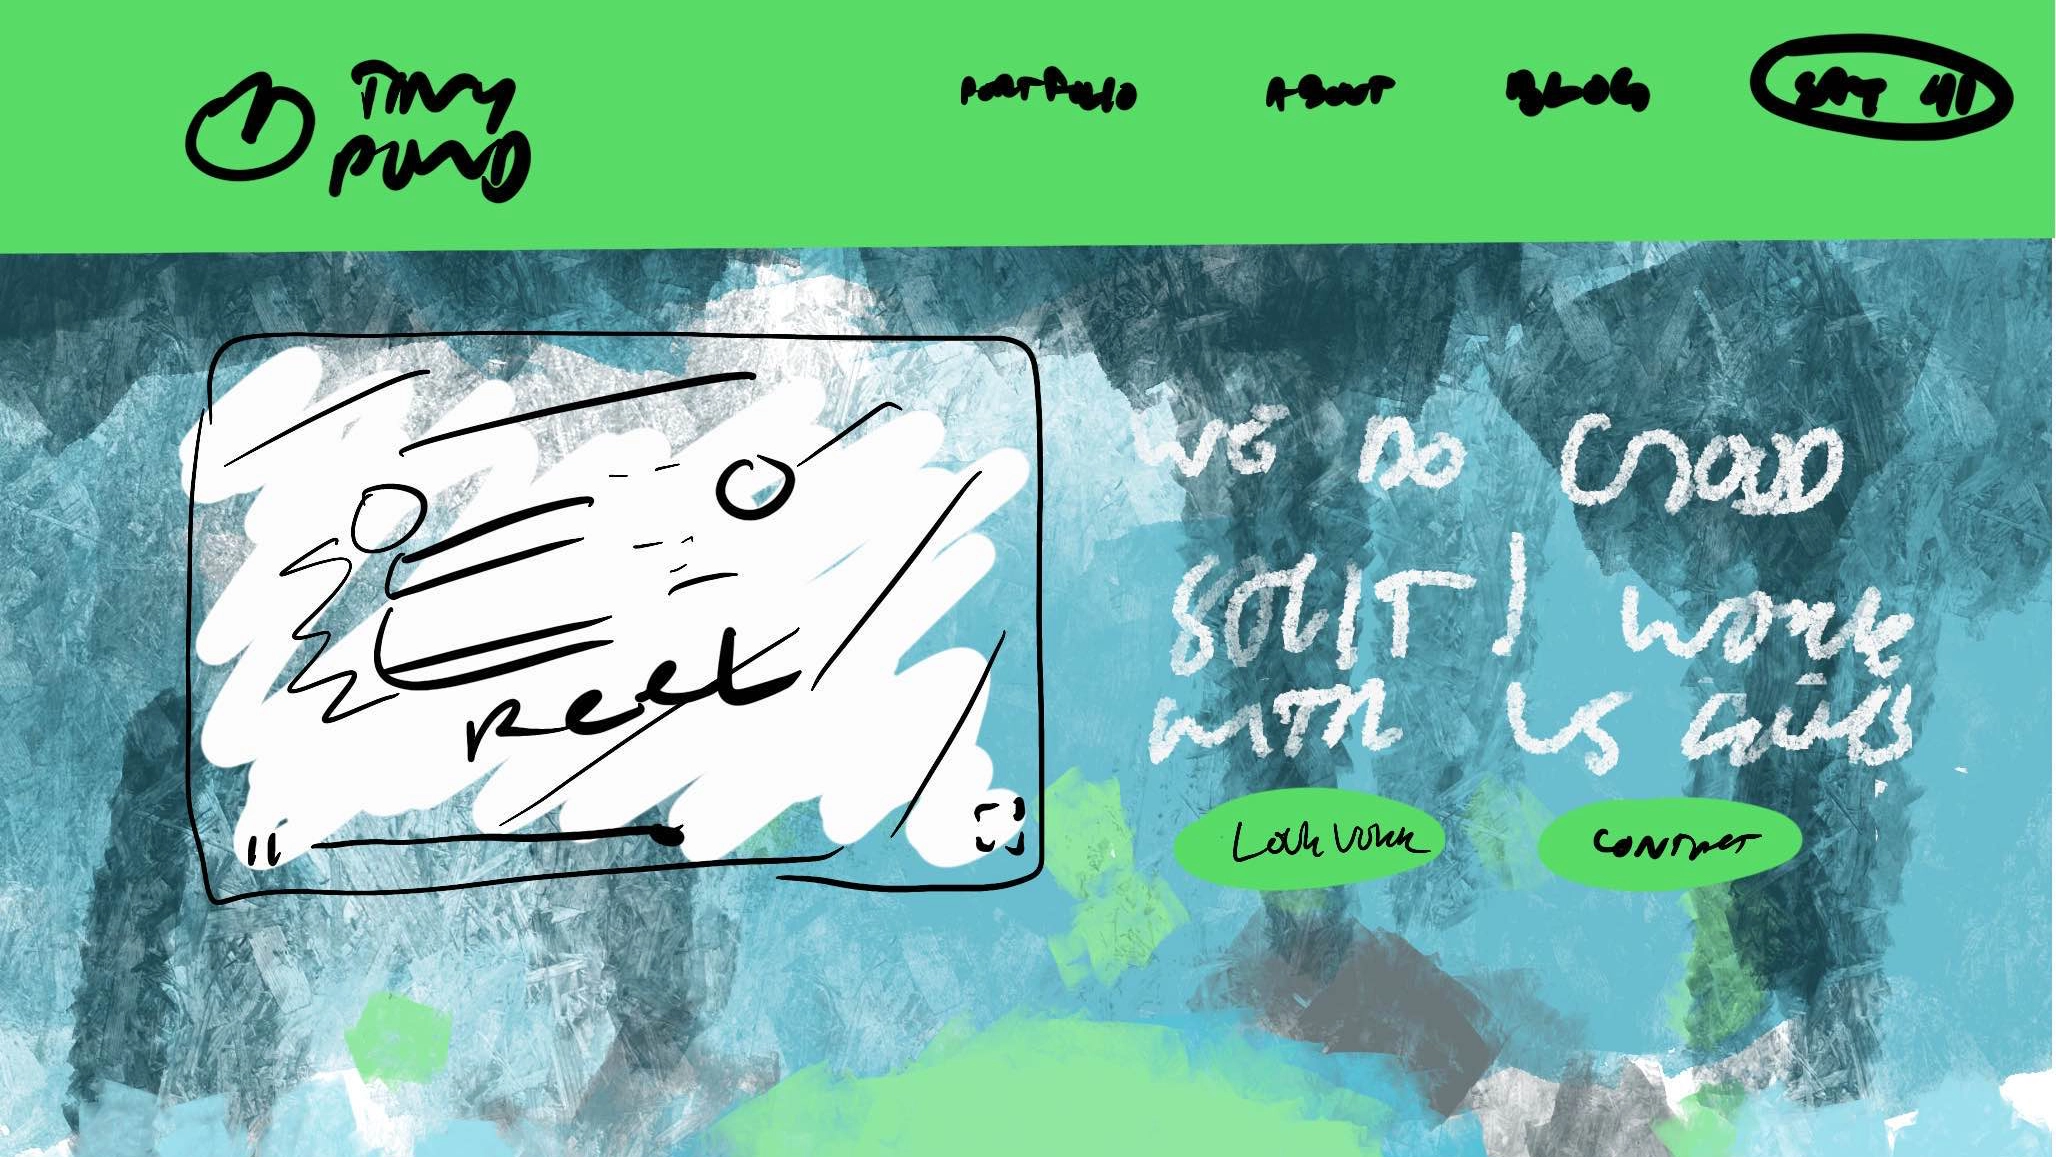 TINY
POND
PORTFOLIO ABOUT BLOG SAY HI
Reel
WE DO GOOD
WORK
WITH US GUYS
CONTACT